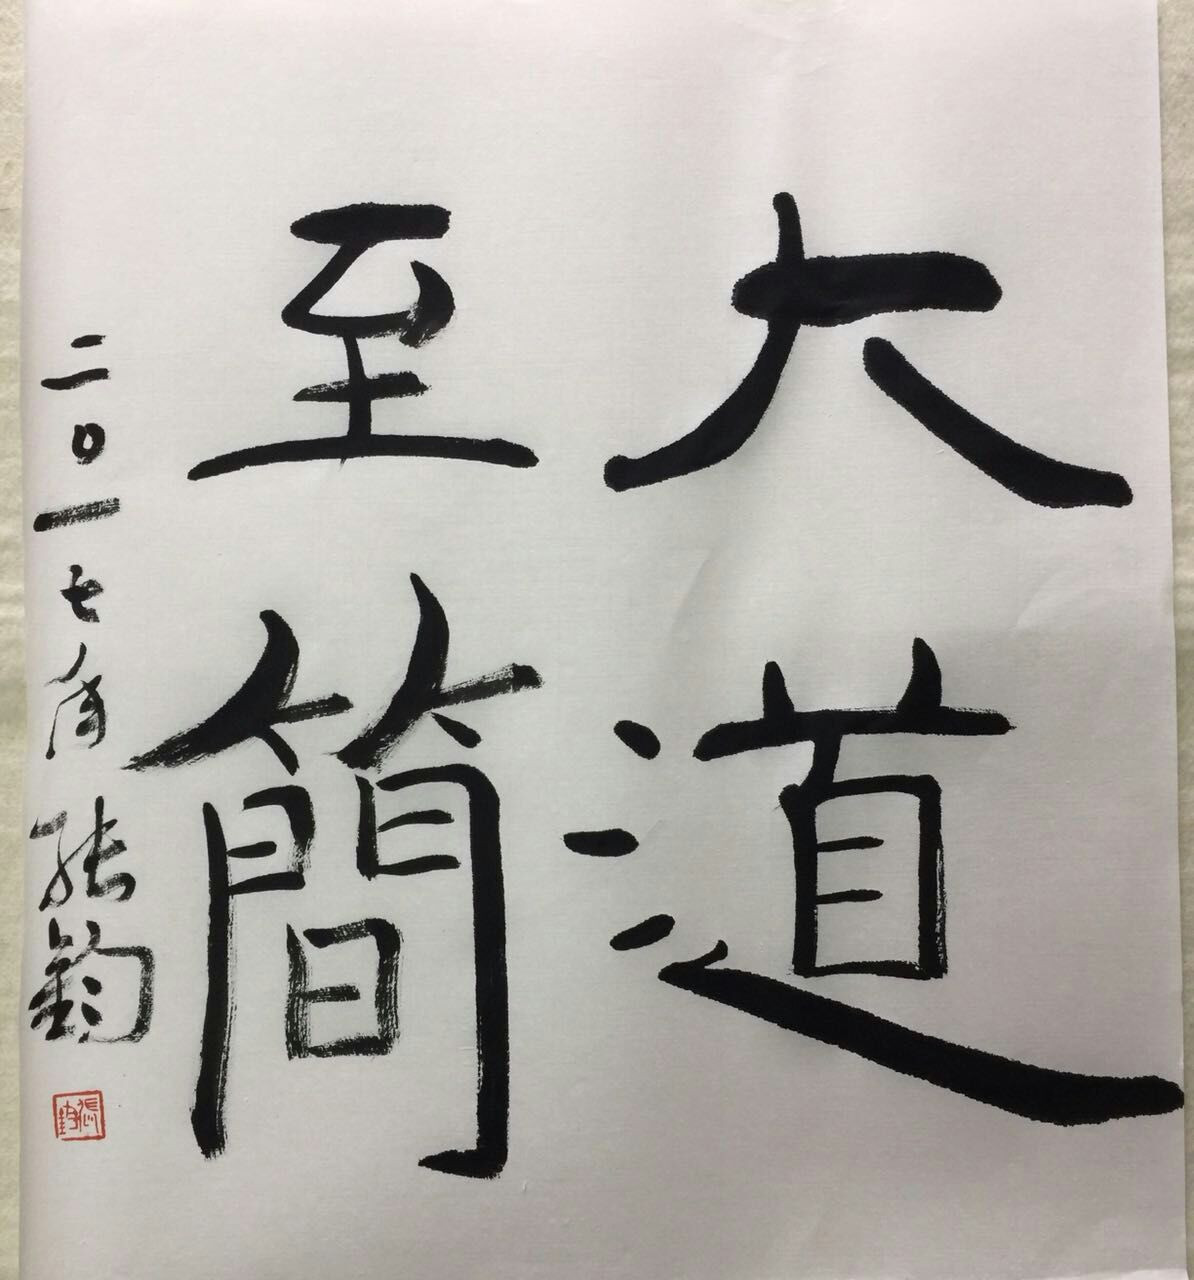 大道
至簡
二〇一七年 张钧
張鈞